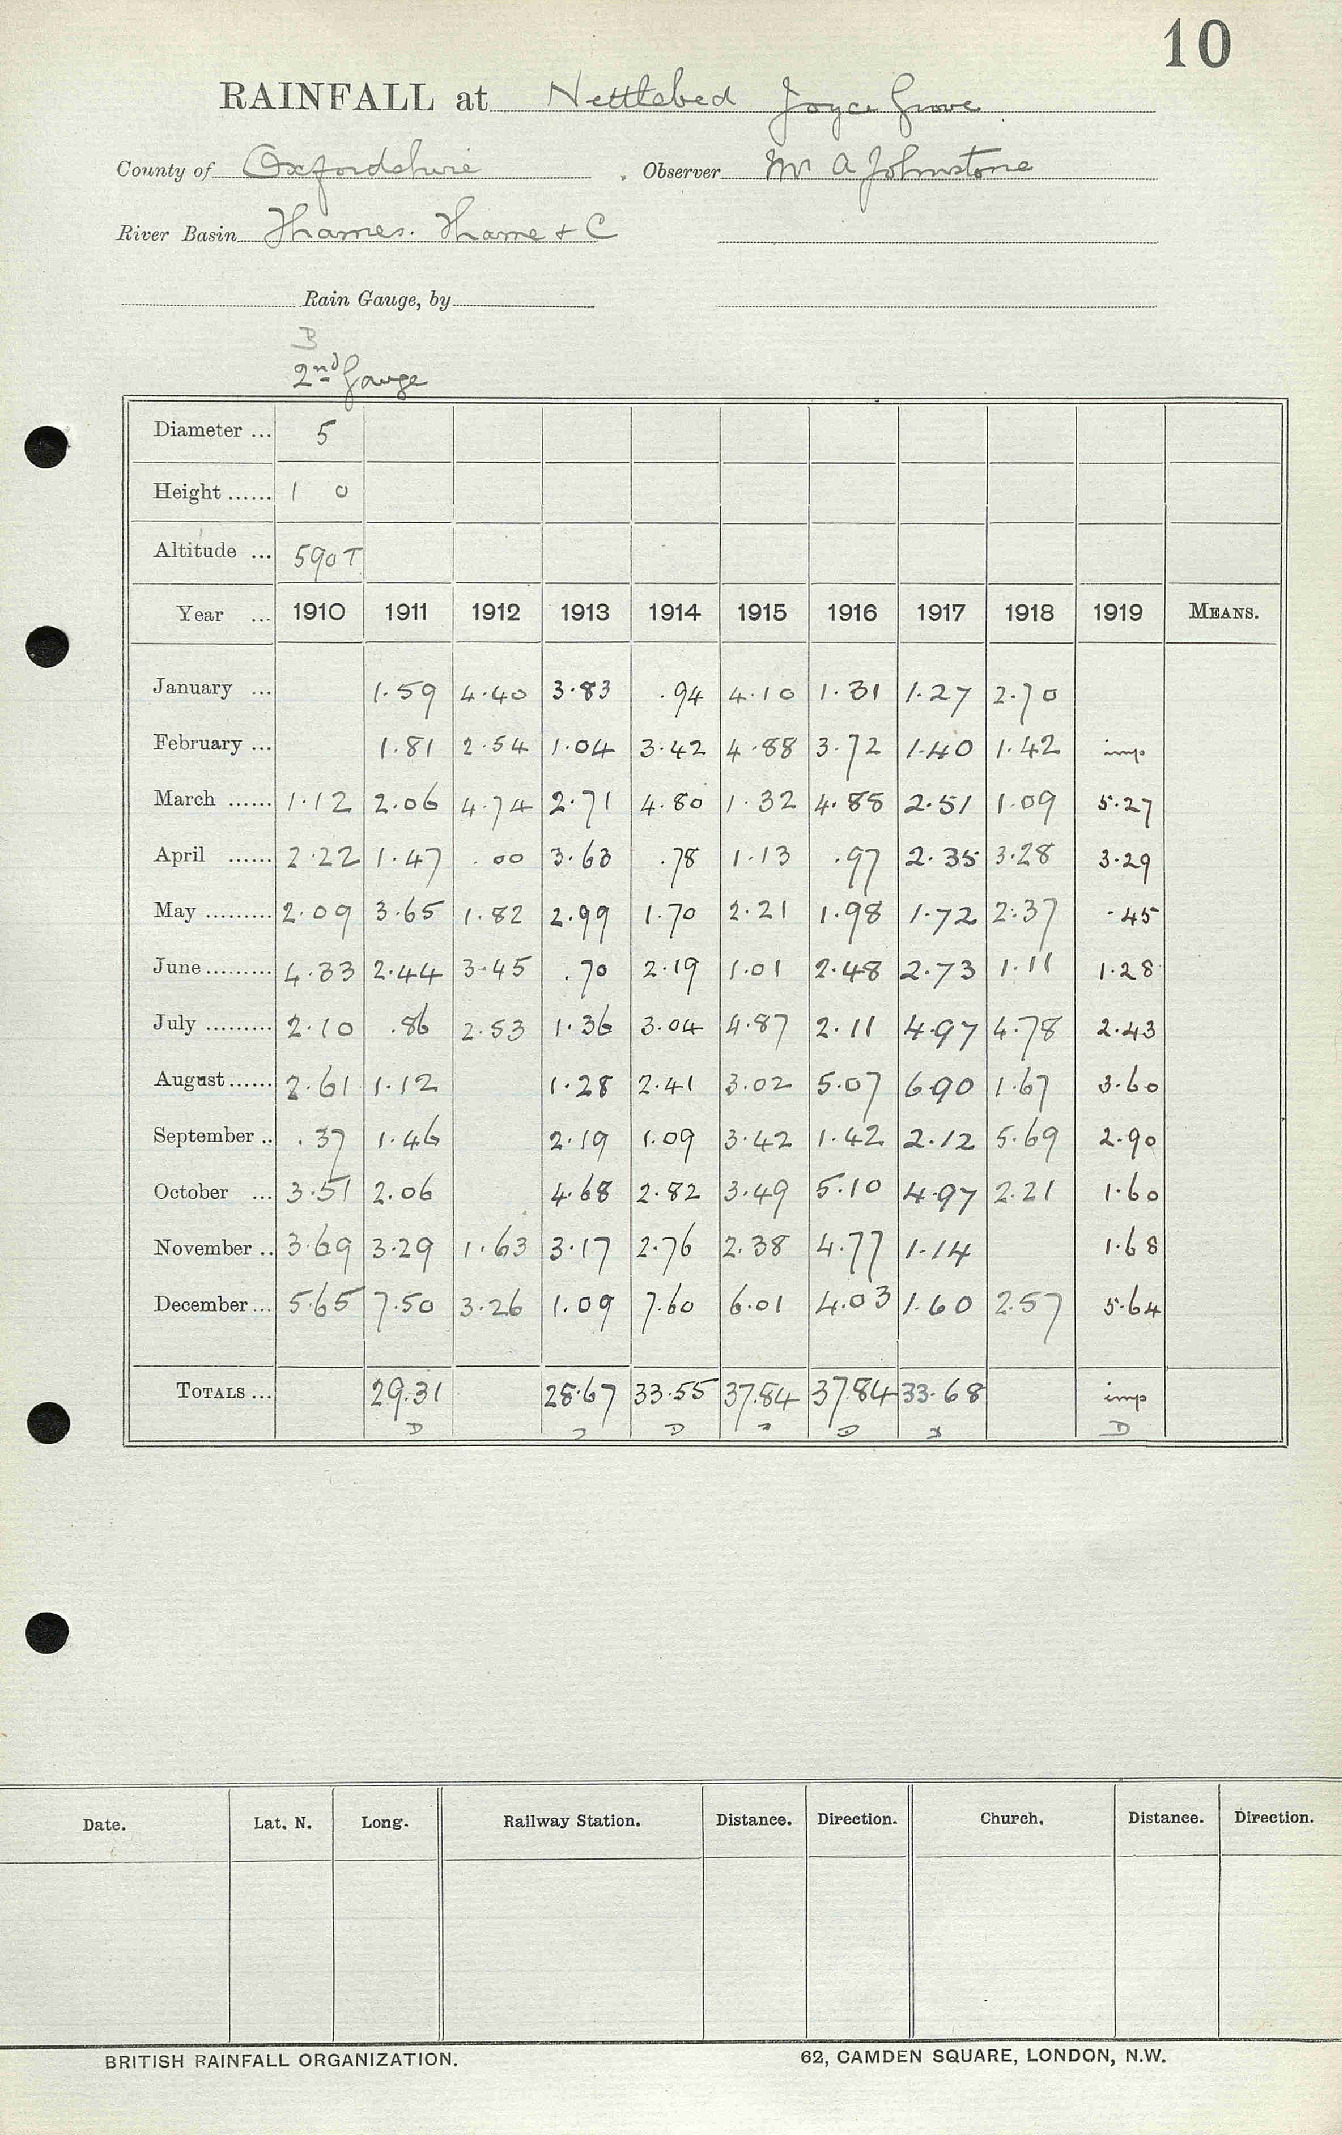 10
RAINFALL at Nettlebed Joyce Grove
County of Oxfordshire Observer Mr A Johnstone
River Basin Thames. Thame & C
Rain Gauge, by
B
2nd Gauge
Diameter ... 5
Height ...... 1 0
Altitude ... 590 T
Year ... 1910 1911 1912 1913 1914 1915 1916 1917 1918 1919 MEANS.
January ... 1.59 4.40 3.83 .94 4.10 1.31 1.27 2.70
February ... 1.81 2.54 1.04 3.42 4.88 3.72 1.40 1.42 imp.
March ...... 1.12 2.06 4.74 2.71 4.80 1.32 4.85 2.51 1.09 5.27
April ...... 2.22 1.47 .00 3.63 .78 1.13 .97 2.35 3.28 3.29
May ......... 2.09 3.65 1.82 2.99 1.70 2.21 1.98 1.72 2.37 .45
June ......... 4.33 2.44 3.45 .70 2.19 1.01 2.48 2.73 1.11 1.28
July ......... 2.10 .86 2.53 1.36 3.04 4.87 2.11 4.97 4.78 2.43
August ...... 2.61 1.12 1.28 2.41 3.02 5.07 6.90 1.67 3.60
September .. .37 1.46 2.19 1.09 3.42 1.42 2.12 5.69 2.90
October ... 3.51 2.06 4.68 2.82 3.49 5.10 4.97 2.21 1.60
November .. 3.69 3.29 1.63 3.17 2.76 2.38 4.77 1.14 1.68
December ... 5.65 7.50 3.26 1.09 7.60 6.01 4.03 1.60 2.57 5.64
TOTALS ... 29.31 28.67 33.55 37.84 37.84 33.68 imp
D D D D
Date. Lat. N. Long. Railway Station. Distance. Direction. Church. Distance. Direction.
BRITISH RAINFALL ORGANIZATION. 62, CAMDEN SQUARE, LONDON, N.W.